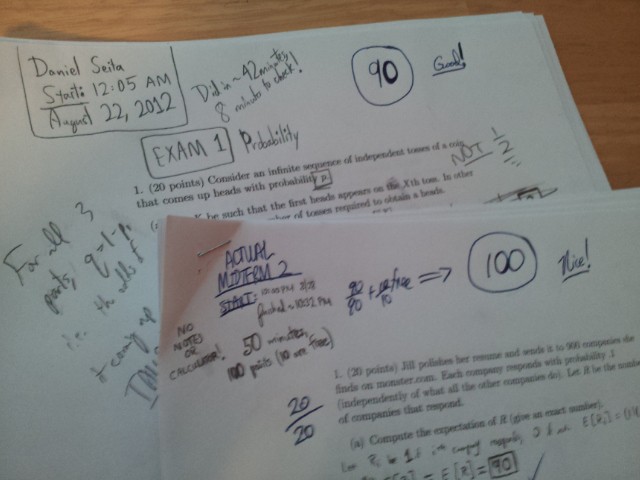 Daniel Seita
Start: 12:05 AM
August 22, 2012
Did in ~42 minutes,
8 minutes to check!
90
Good!
EXAM 1 Probability
NOT 1/2
1. (20 points) Consider an infinite sequence of independent tosses of a coin
that comes up heads with probability p.
be such that the first heads appears on the Xth toss. In other
of tosses required to obtain a heads.
For all 3
parts, q=1-p.
i.e. the odds of
it coming up
ACTUAL
MIDTERM 2
START:
finished ~10:32 PM
90/90 + free 10 ⇒ 100
Nice!
NO
NOTES
OR
CALCULATOR!
50 minutes,
100 points (10 are free)
20/20
1. (20 points) Jill polishes her resume and sends it to 900 companies she
finds on monster.com. Each company responds with probability .1
(independently of what all the other companies do). Let R be the number
of companies that respond.
(a) Compute the expectation of R (give an exact number).
E[R] = 90